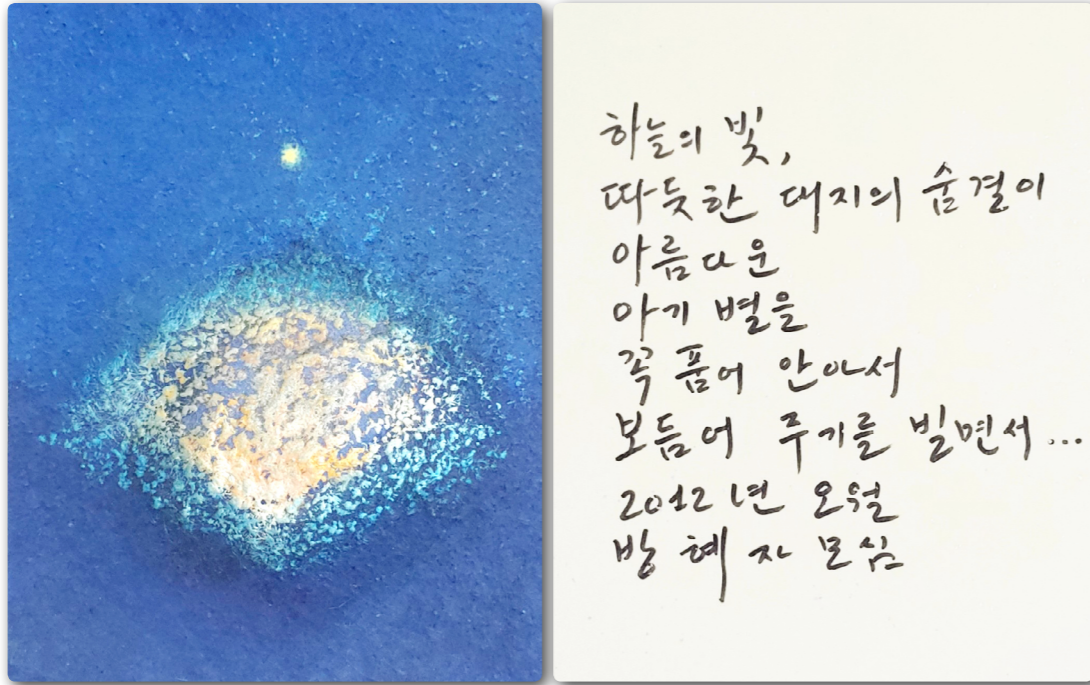 하늘의 빛,
따듯한 대지의 숨결이
아름다운
아기 별을
꼭 품어 안아서
보듬어 주기를 빌면서...
2012년 오월
방혜자 모심